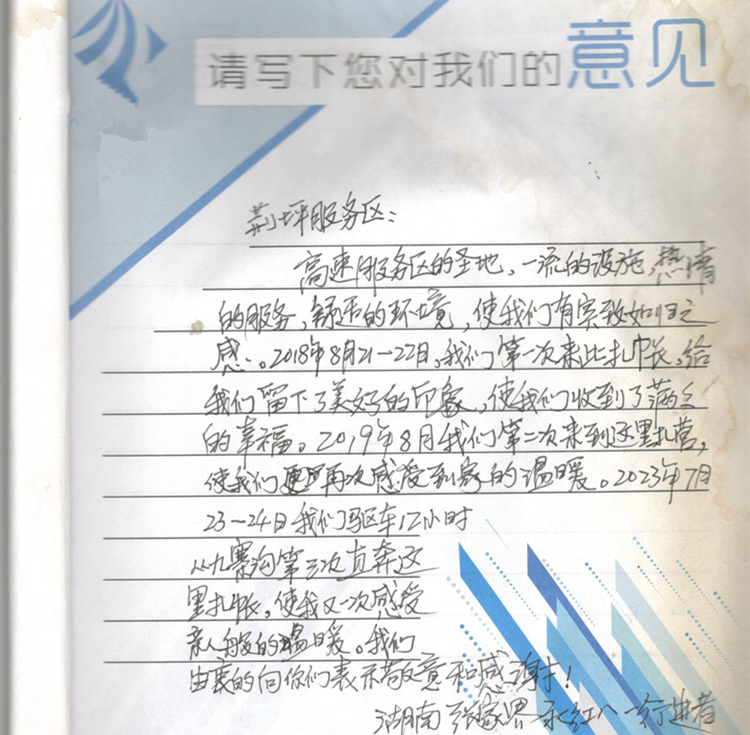 请写下您对我们的意见
荆坪服务区：
高速服务区的圣地，一流的设施，热情
的服务，舒适的环境，使我们有宾致如归之
感。2018年8月21-22日，我们第一次来此扎帐，给
我们留下了美好的印象，使我们收到了满满
的幸福。2019年8月我们第二次来到这里扎营，
使我们更再次感受到家的温暖。2023年7月
23-24日我们驱车12小时
从九寨沟第三次直奔这
里扎帐，使我又一次感受
亲人般的温暖。我们
由衷的向你们表示敬意和感谢！
湖南张家界永红八一行进者